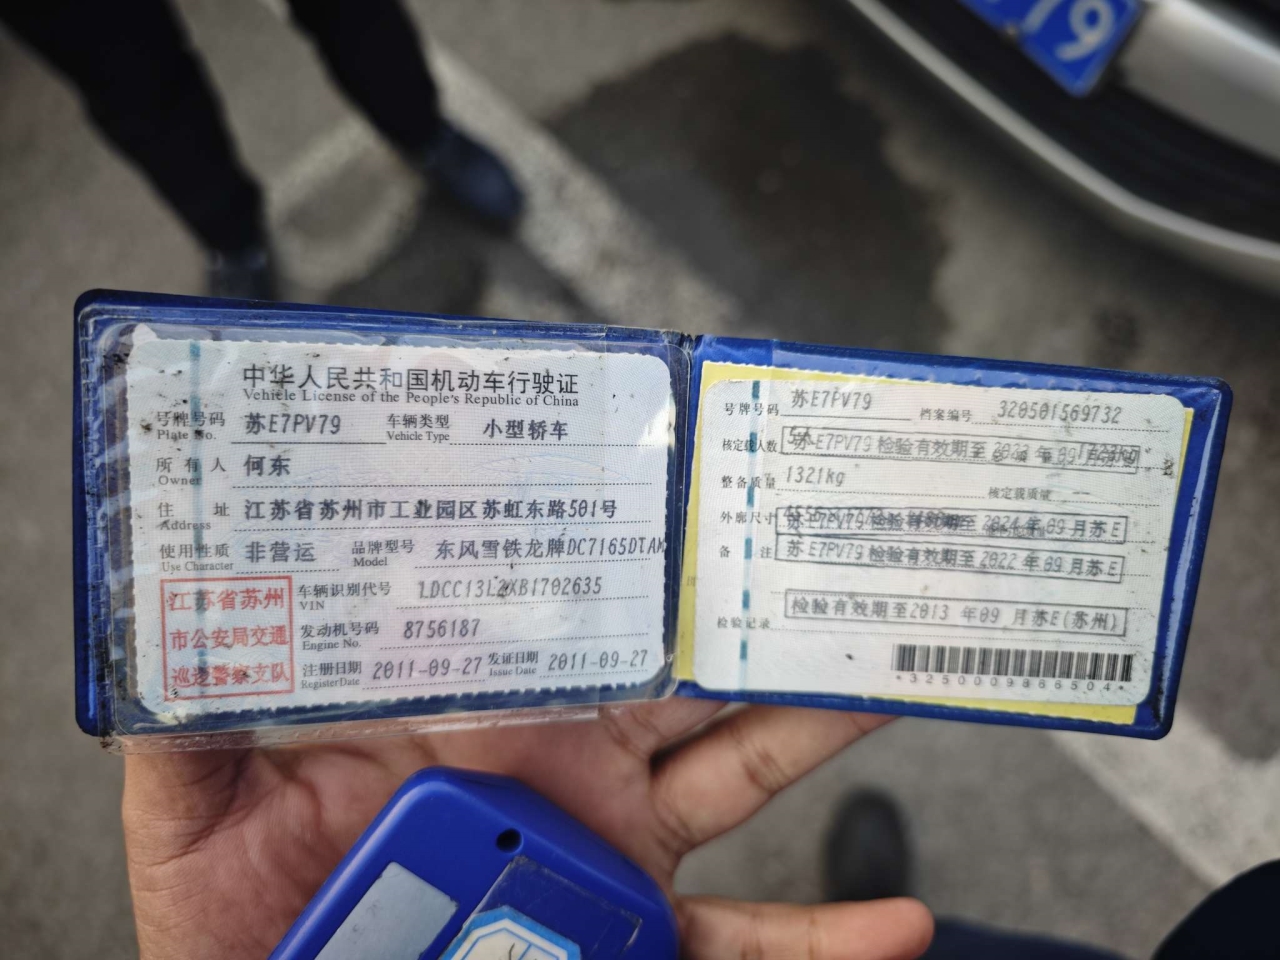 中华人民共和国机动车行驶证
Vehicle License of the People's Republic of China
号牌号码 苏E7PV79 车辆类型 小型轿车
Plate No. Vehicle Type
所有人 何东
Owner
住址 江苏省苏州市工业园区苏虹东路501号
Address
使用性质 非营运 品牌型号 东风雪铁龙牌DC7165DTAM
Use Character Model
江苏省苏州
市公安局交通
巡逻警察支队
车辆识别代号 LDCC13L2XB1702635
VIN
发动机号码 8756187
Engine No.
注册日期 2011-09-27 发证日期 2011-09-27
Register Date Issue Date
号牌号码 苏E7PV79 档案编号 320501569732
核定载人数 苏E7PV79 检验有效期至 年 09 月苏
整备质量 1321kg 核定载质量
外廓尺寸 苏E7PV79 检验有效期至 2024 年 09 月苏E
备注 苏E7PV79 检验有效期至 2022 年 09 月苏E
检验有效期至2013 年09 月苏E(苏州)
检验记录
*3250009866504*
19